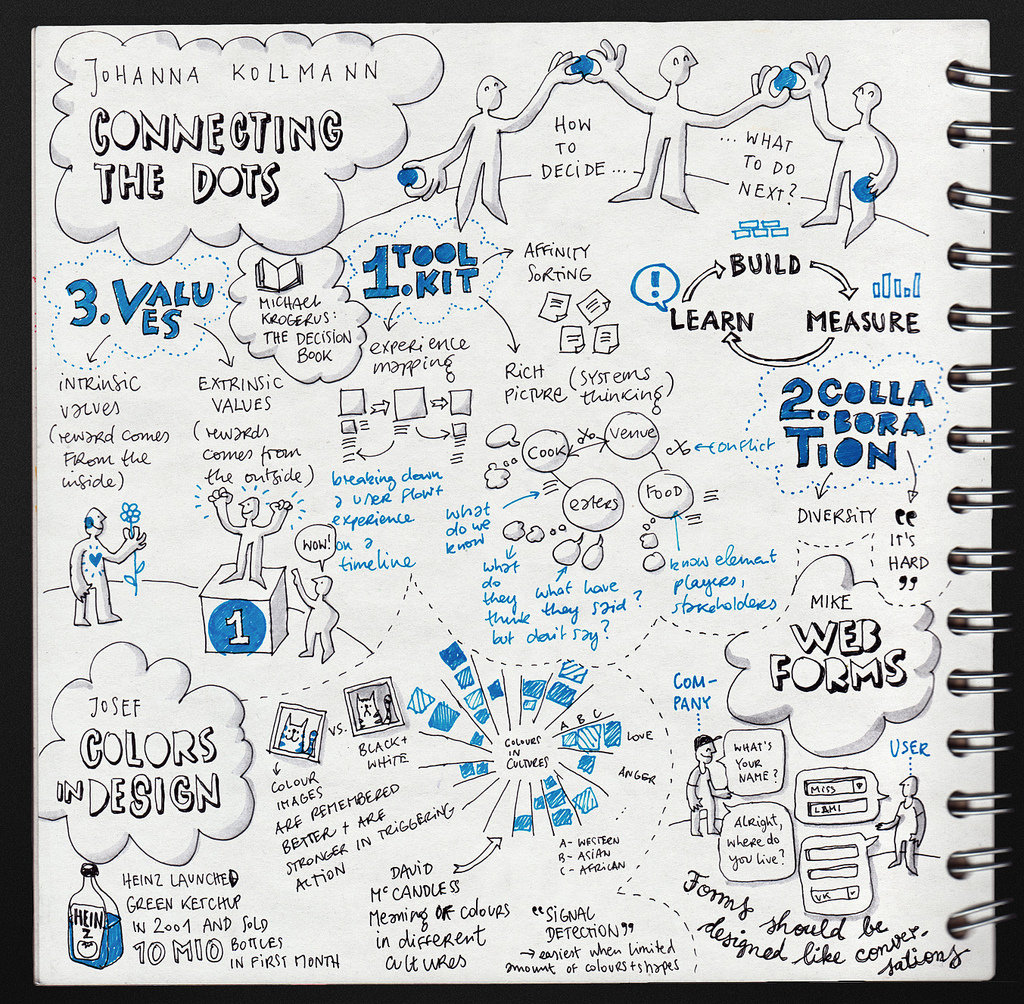 JOHANNA KOLLMANN
CONNECTING
THE DOTS
HOW
TO
DECIDE...
...WHAT
TO DO
NEXT?
1. TOOL
KIT
AFFINITY
SORTING
experience
mapping
breaking down
a user flow+
experience
on a
timeline
RICH
PICTURE (SYSTEMS
thinking)
COOK
VENUE
eaters
FOOD
conflict
what
do we
know
what
do
they
think
what have
they said?
but don't say?
know element
players,
stakeholders
BUILD
MEASURE
LEARN
!
2. COLLA
BORA
TION
DIVERSITY
"IT'S
HARD"
3. VALU
ES
INTRINSIC
values
(reward comes
FROM the
inside)
EXTRINSIC
VALUES
(rewards
comes from
the outside)
WOW!
1
MICHAEL
KROGERUS:
THE DECISION
BOOK
MIKE
WEB
FORMS
COM-
PANY
USER
WHAT'S
YOUR
NAME?
MISS
Alright,
where do
you live?
VK
Forms should be
designed like conver-
sations
JOSEF
COLORS
IN DESIGN
HEINZ LAUNCHED
GREEN KETCHUP
IN 2001 AND SOLD
10 MIO BOTTLES
IN FIRST MONTH
HEIN
Z
VS.
BLACK+
WHITE
COLOUR
IMAGES
ARE REMEMBERED
BETTER + ARE
STRONGER IN TRIGGERING
ACTION
COLOURS
IN
CULTURES
A B C
LOVE
ANGER
A - WESTERN
B - ASIAN
C - AFRICAN
DAVID
McCANDLESS
Meaning OF colours
in different
cultures
"SIGNAL
DETECTION"
→ easiest when limited
amount of colours+shapes